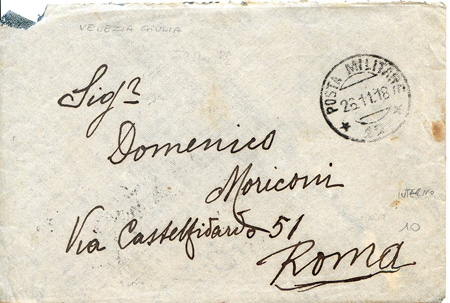 VENEZIA GIULIA
POSTA MILITARE
26.11.18
Sigr
Domenico
Moriconi
Via Castelfidardo 51
Roma
INTERNO
10